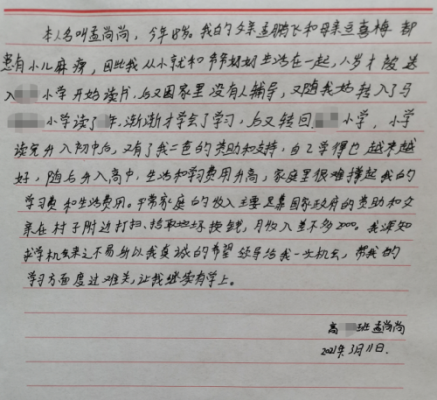 本人名叫孟尚尚，今年18岁。我的父亲孟鹏飞和母亲豆喜梅 都
患有小儿麻痹，因此我从小就和爷爷奶奶生活在一起，八岁才被送
入 小学开始读书，后又因家里没有人辅导，又随我姑转入了马
小学读了 年，渐渐才学会了学习，后又转回 小学，小学
读完升入初中后，又有了我二爸的资助和支持，自己学得也越来越
好，随后升入高中，生活和学习费用升高，家庭里很难撑起我的
学习费和生活费用。平常家庭的收入主要是靠国家政府的资助和父
亲在村子附近打扫、捡取垃圾换钱，月收入差不多2000。我深知
求学机会来之不易所以我真诚的希望 领导给我一次机会，帮我的
学习方面度过难关，让我继续有学上。
高 班 孟尚尚
2021年3月11日.